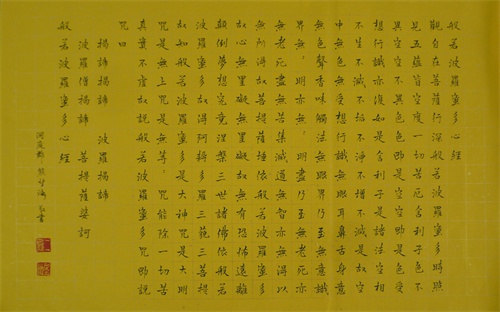 般若波羅蜜多心經
觀自在菩薩行深般若波羅蜜多時照
見五蘊皆空度一切苦厄舍利子色不
異空空不異色色即是空空即是色受
想行識亦復如是舍利子是諸法空相
不生不滅不垢不淨不增不減是故空
中無色無受想行識無眼耳鼻舌身意
無色聲香味觸法無眼界乃至無意識
界無、明亦無、明盡乃至無老死亦
無老死盡無苦集滅道無智亦無得以
無所得故菩提薩埵依般若波羅蜜多
故心無罣礙無罣礙故無有恐怖遠離
顛倒夢想究竟涅槃三世諸佛依般若
波羅蜜多故得阿耨多羅三藐三菩提
故知般若波羅蜜多是大神咒是大明
咒是無上咒是無等、咒能除一切苦
真實不虛故說般若波羅蜜多咒即說
咒曰
揭諦揭諦 波羅揭諦
波羅僧揭諦 菩提薩婆訶
般若波羅蜜多心經
書